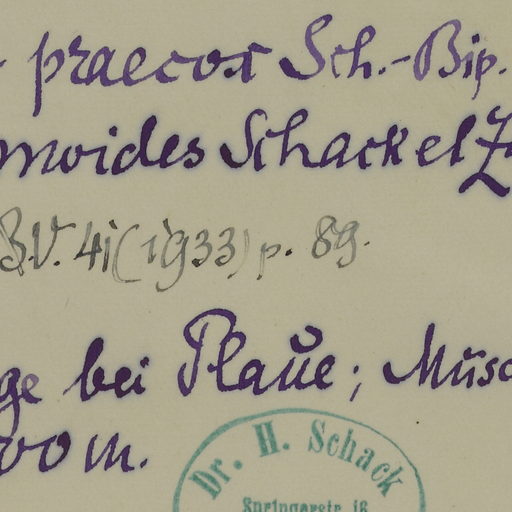 praecox Sch.-Bip.
moides Schack el Z
B.V. 41 (1933) p. 89.
ge bei Plaue; Musc
00 m.
Dr. H. Schack
Springerstr. 16